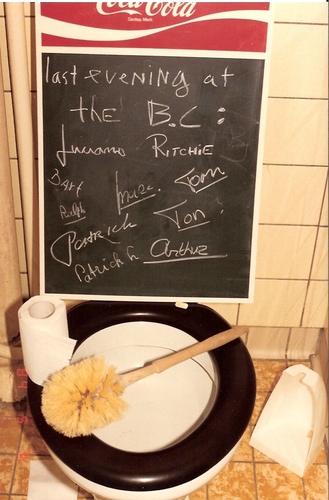 Coca-Cola
last evening at
the B.C:
Luciano RITCHIE
Bart Marc. Tom
Ralph Ton.
Patrick
Patrick G. Arthur